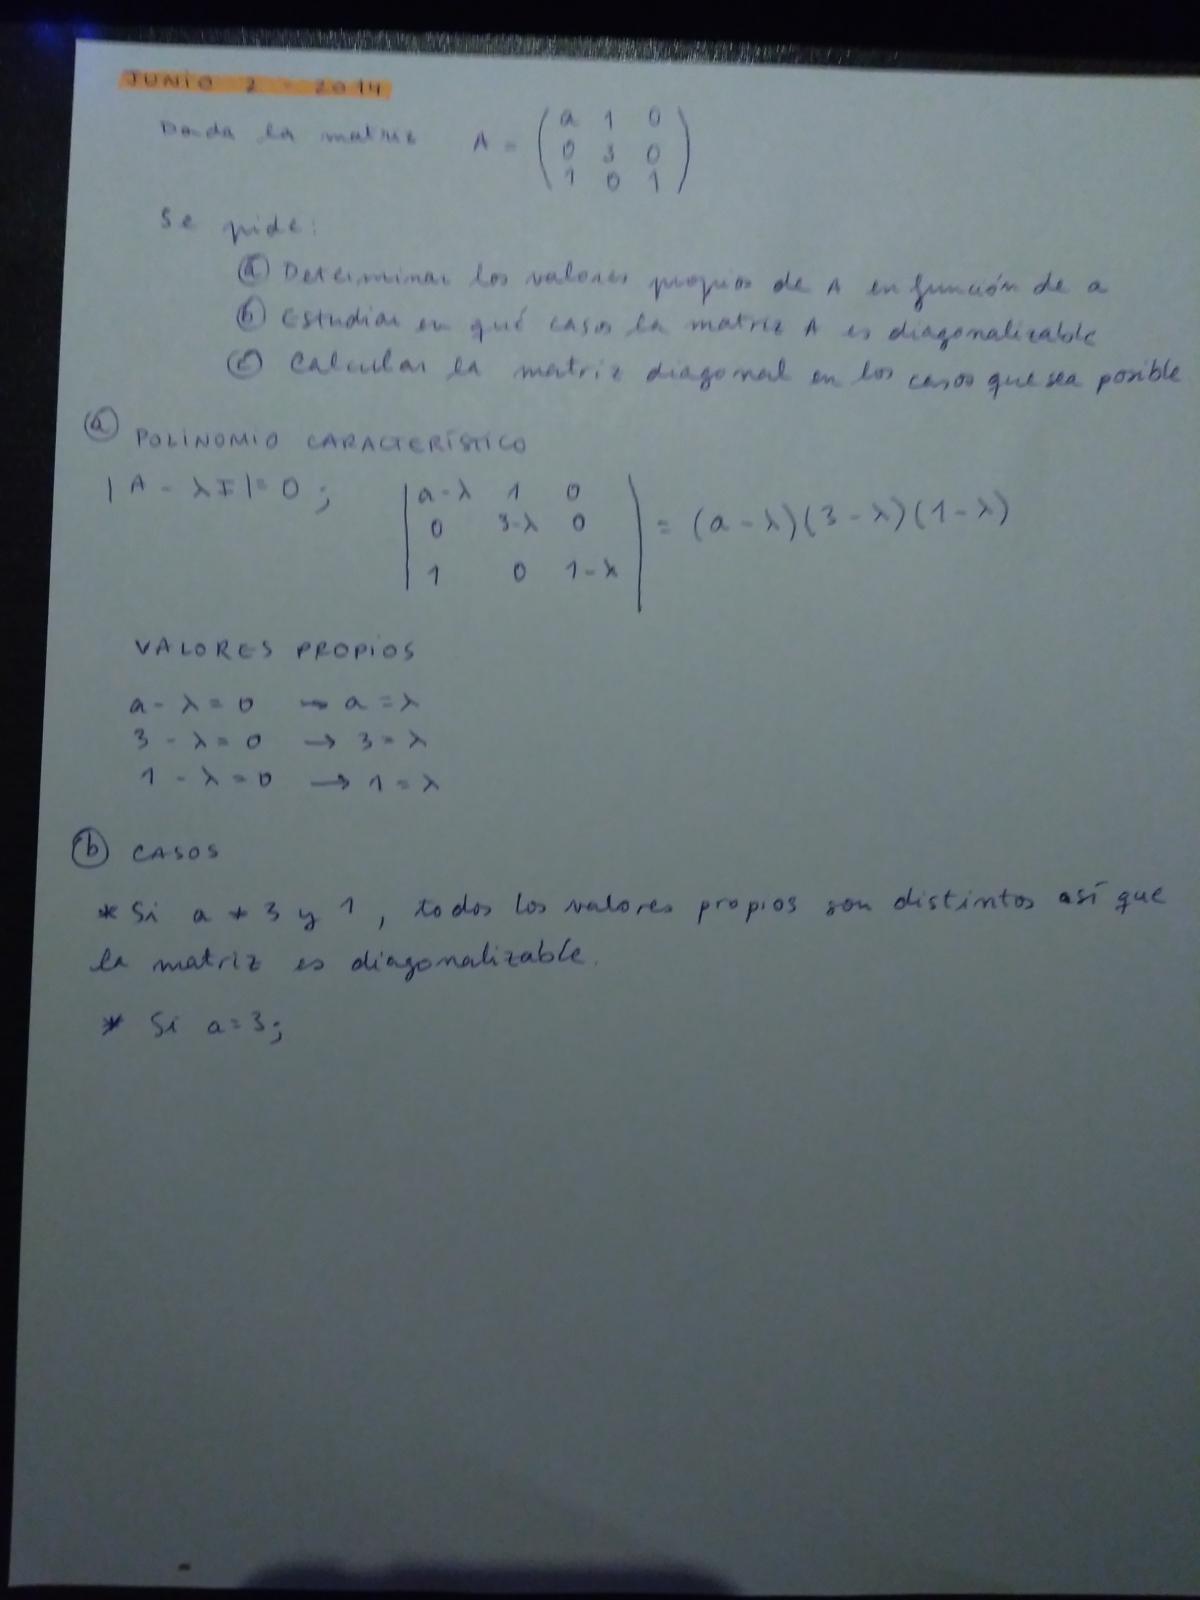 JUNIO 2 - 2014
Dada la matriz A = (a 1 0
0 3 0
1 0 1)
Se pide:
(a) Determinar los valores propios de A en función de a
(b) Estudiar en qué casos la matriz A es diagonalizable
(c) Calcular la matriz diagonal en los casos que sea posible
(a) POLINOMIO CARACTERÍSTICO
|A - λI| = 0; |a-λ 1 0
0 3-λ 0
1 0 1-λ| = (a-λ)(3-λ)(1-λ)
VALORES PROPIOS
a - λ = 0 → a = λ
3 - λ = 0 → 3 = λ
1 - λ = 0 → 1 = λ
(b) CASOS
* Si a ≠ 3 y 1, todos los valores propios son distintos así que
la matriz es diagonalizable.
* Si a = 3;